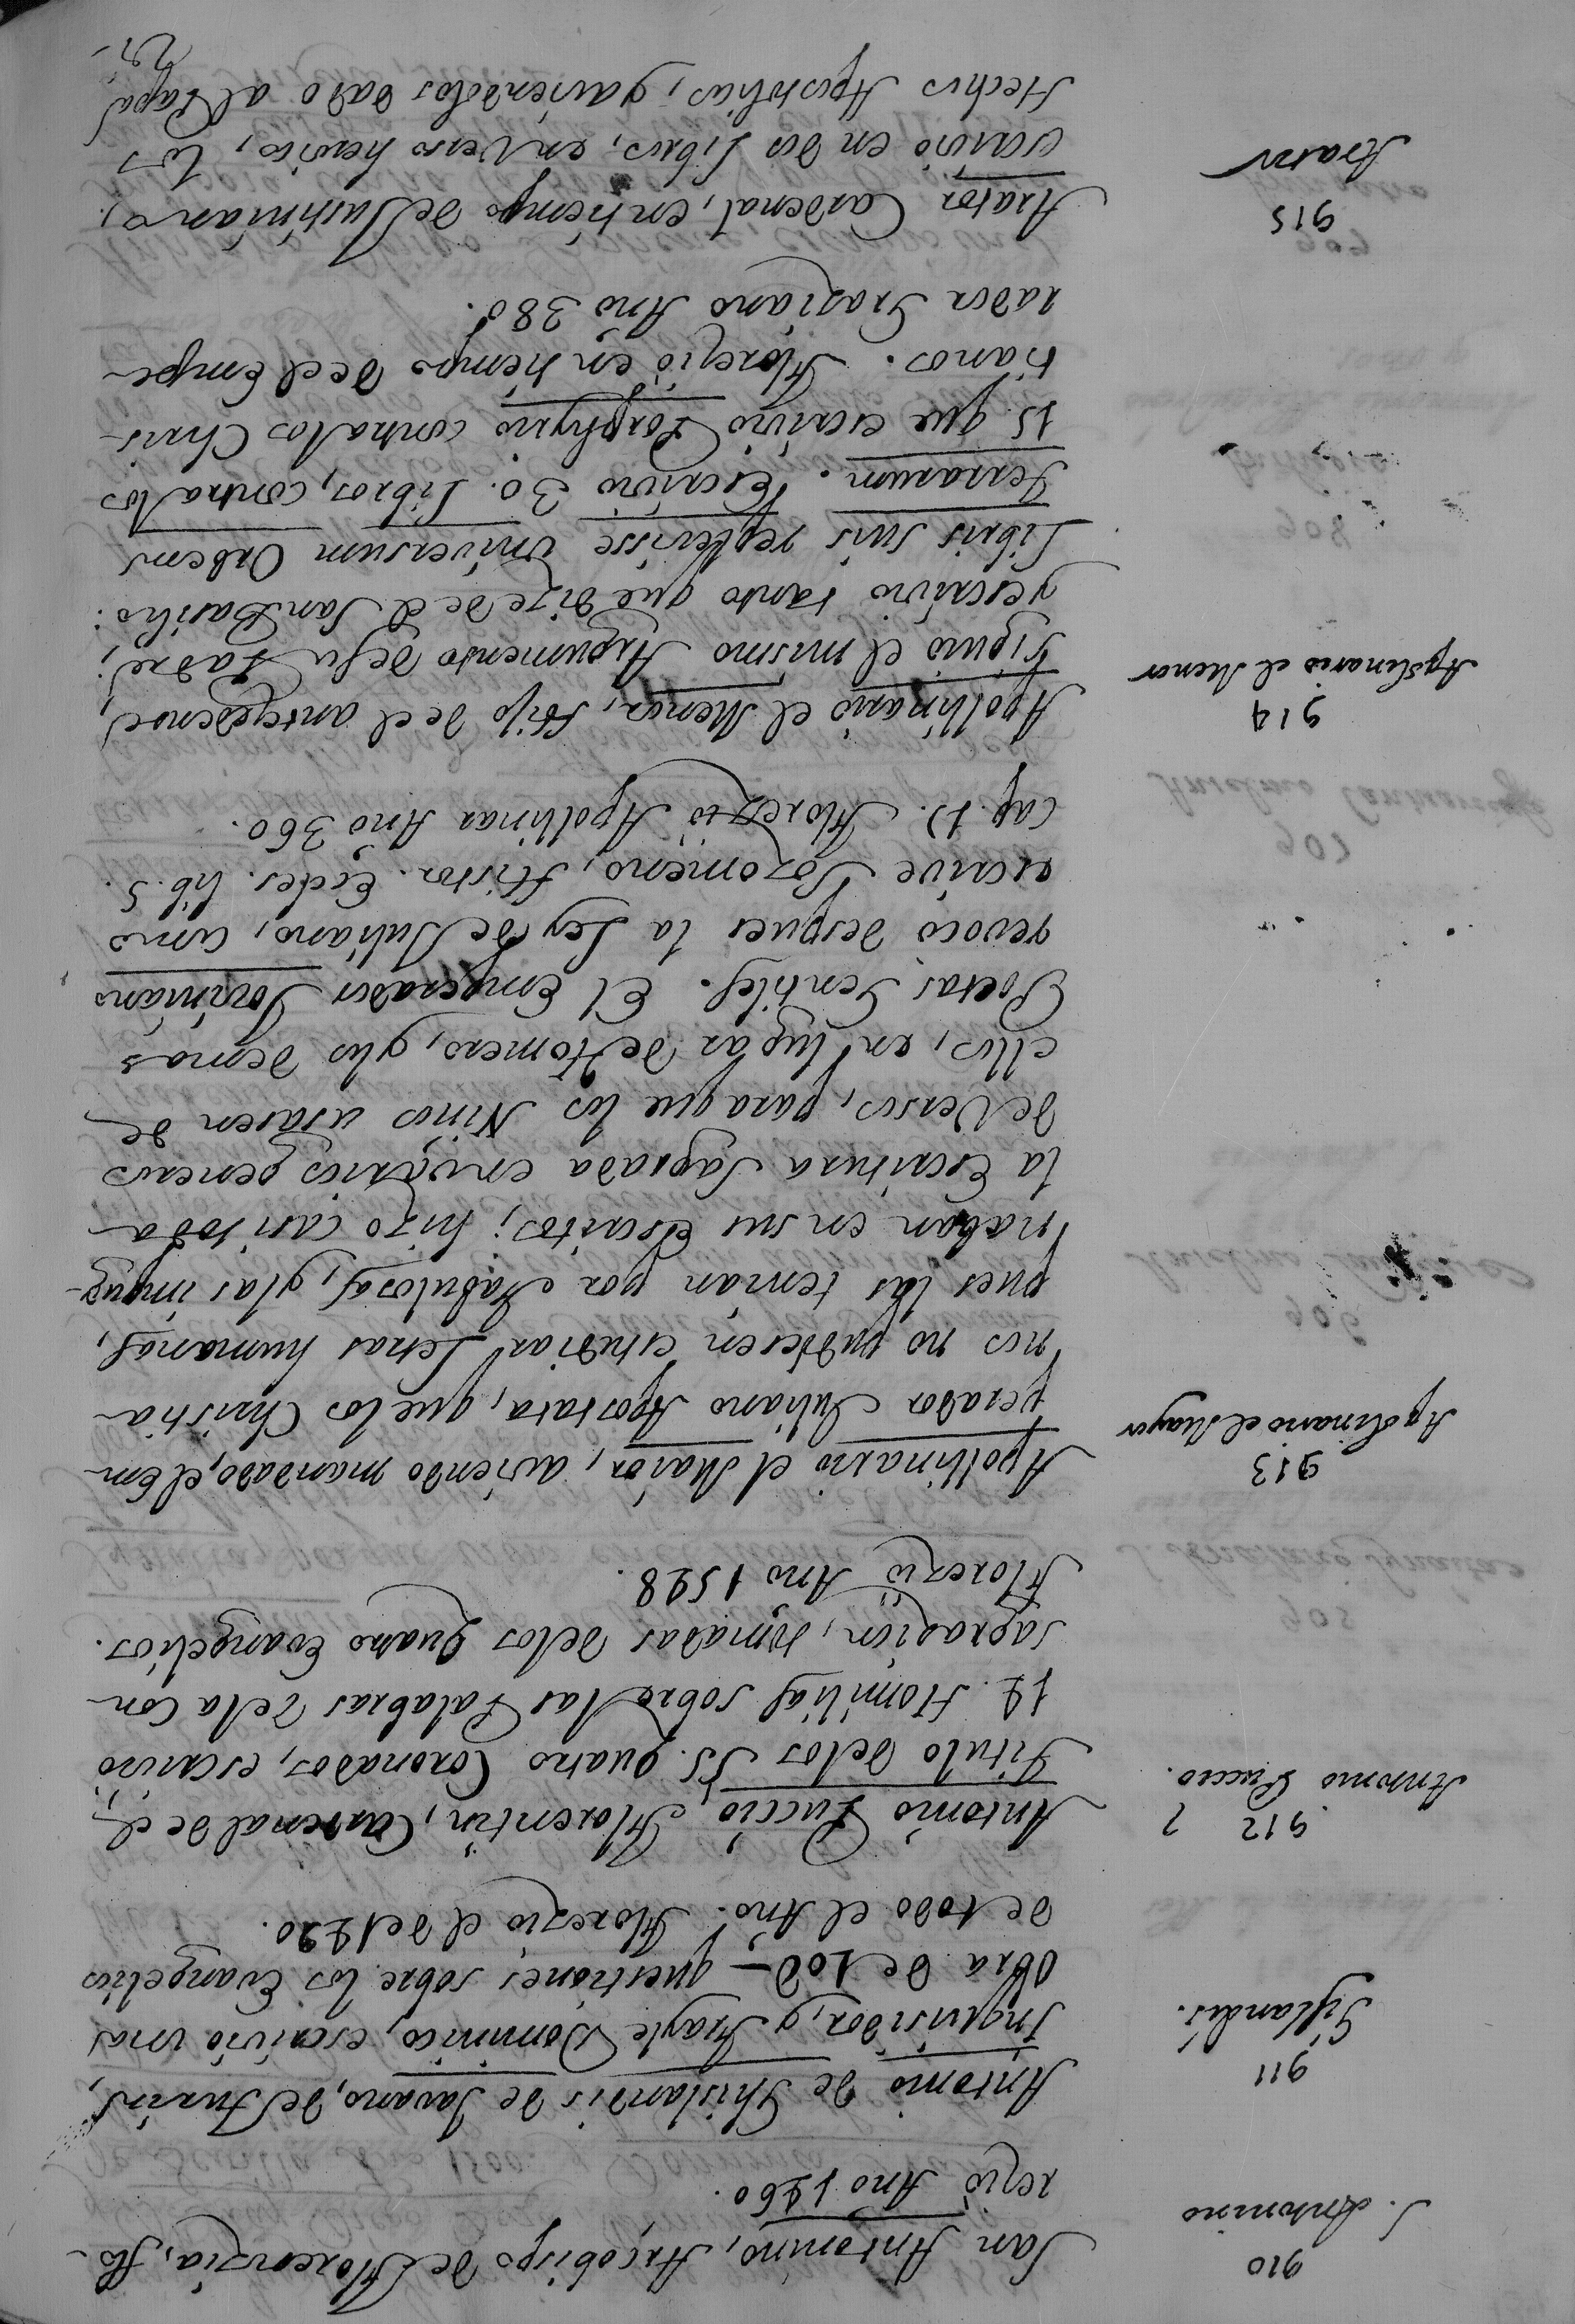 910
S. Antonino
San Antonino, Arçobispo de Florenzia, flo-
rezio Año 1460.
911
Gislandis.
Antonio de Ghislandis de Javano, de Turin,
Inquisidor, y Frayle Dominico, escrivio una
Obra de 100 — questiones sobre los Evangelios
de todo el Año. Florezio el de 1490.
912
Antonio Puccio.
Antonio Puccio, Florentin, Cardenal de el
Titulo de los SS. Quatro Coronados, escrivio
14. Homilias sobre las Palabras de la Con-
sagrazion, tomadas de los Quatro Evangelios.
Florezio Año 1528.
913
Apolinario el Mayor
Apollinario el Maior, aviendo mandado, el Em-
perador Juliano Apostata, que los Christia-
nos no pudiesen estudiar Letras humanas,
pues las tenian por Fabulosas, y las impug-
naban en sus escritos; hizo casi toda
la Escritura Sagrada en varios generos
de Versos, para que los Niños usasen de
ellos, en lugar de Homero, y los demas
Poetas Gentiles. El Emperador Jovinians
revocó despues la Ley de Juliano, como
escrive Sozomeno, Histor. Eccles. lib. 5.
cap. 17. Florezio Apollinar Año 360.
914
Apolinario el Menor
Apollinario el Menor, Hijo de el antezedente,
siguio el mismo Argumento de su Padre,
y escrivio tanto que dize de el San Basilio:
Libris suis replevisse Universum Orbem
Terrarum. Escrivio 30. Libros, contra los
15 que escrivio Porphyrio contra los Chris-
tianos. Florezio en tiempo de el Empe-
rador Graziano Año 380.
915
Arator
Arator Cardenal, en tiempo de Justiniano,
escrivio en dos Libros, en Verso heroico, los
Hechos Apostolicos, y aviendolos dado al Papa